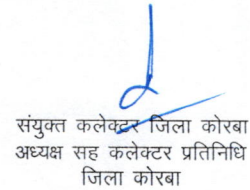 संयुक्त कलेक्टर जिला कोरबा
अध्यक्ष सह कलेक्टर प्रतिनिधि
जिला कोरबा